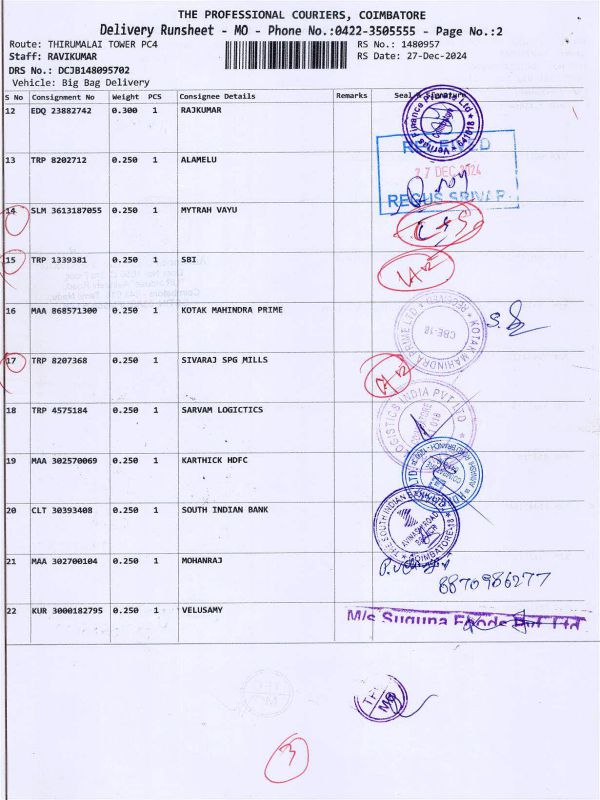 THE PROFESSIONAL COURIERS, COIMBATORE
Delivery Runsheet - MO - Phone No.:0422-3505555 - Page No.:2
Route: THIRUMALAI TOWER PC4 RS No.: 1480957
Staff: RAVIKUMAR RS Date: 27-Dec-2024
DRS No.: DCJB148095702
Vehicle: Big Bag Delivery
S No Consignment No Weight PCS Consignee Details Remarks Seal & Signature
12 EDQ 23882742 0.300 1 RAJKUMAR
13 TRP 8202712 0.250 1 ALAMELU
27 DEC 2024
14 SLM 3613187055 0.250 1 MYTRAH VAYU
REGUS SRIVARI
15 TRP 1339381 0.250 1 SBI
16 MAA 868571300 0.250 1 KOTAK MAHINDRA PRIME
KOTAK MAHINDRA PRIME LTD
CBE-18
17 TRP 8207368 0.250 1 SIVARAJ SPG MILLS
18 TRP 4575184 0.250 1 SARVAM LOGICTICS
LOGISTICS INDIA PVT LTD
19 MAA 302570069 0.250 1 KARTHICK HDFC
20 CLT 30393408 0.250 1 SOUTH INDIAN BANK
21 MAA 302700104 0.250 1 MOHANRAJ
8870986277
22 KUR 3000182795 0.250 1 VELUSAMY
M/s Suguna Foods Pvt Ltd
3